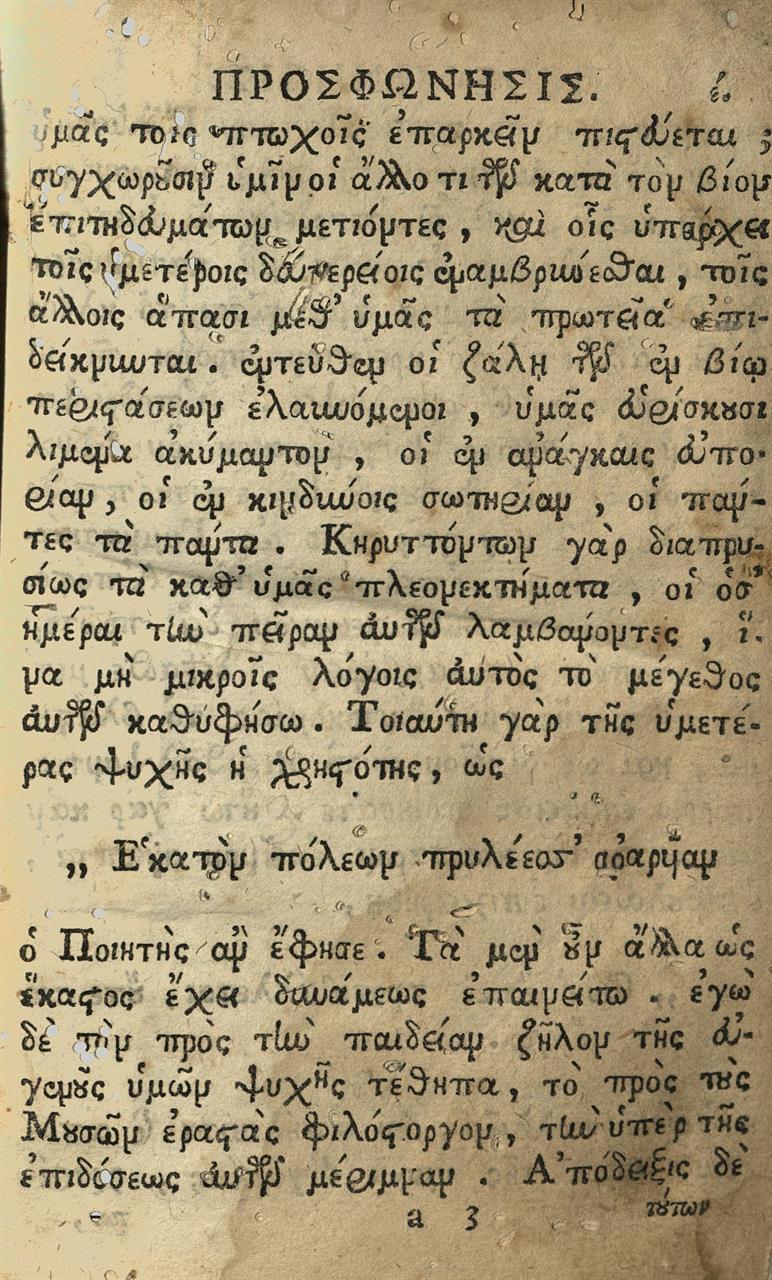 ΠΡΟΣΦΩΝΗΣΙΣ. έ.
ὑμᾶς τοῖς πτωχοῖς ἐπαρκεῖν πιστεύεται ;
συγχωροῦσιν ὑμῖν οἱ ἄλλο τι τῶν κατὰ τὸν βίον
ἐπιτηδευμάτων μετιόντες , καὶ οἷς ὑπάρχει
τοῖς ὑμετέροις δευτερείοις ἐναμβρύνεσθαι , τοῖς
ἄλλοις ἅπασι μεθ' ὑμᾶς τὰ πρωτεῖα ἐπι-
δείκνυνται . ἐντεῦθεν οἱ ζάλῃ τῶν ἐν βίῳ
περιστάσεων ἐλαυνόμενοι , ὑμᾶς εὑρίσκουσι
λιμένα ἀκύμαντον , οἱ ἐν ἀνάγκαις εὐπο-
ρίαν , οἱ ἐν κινδύνοις σωτηρίαν , οἱ πάν-
τες τὰ πάντα . Κηρυττόντων γὰρ διαπρυ-
σίως τὰ καθ' ὑμᾶς πλεονεκτήματα , οἱ ὁσ'
ἡμέραι τὴν πεῖραν αὐτῶν λαμβάνοντες , ἵ-
να μὴ μικροῖς λόγοις αὐτὸς τὸ μέγεθος
αὐτῶν καθυφήσω . Τοιαύτη γὰρ τῆς ὑμετέ-
ρας ψυχῆς ἡ χρηστότης , ὡς
,, Ἑκατὸν πόλεων πρυλέεσσ'
ὁ Ποιητὴς ἂν ἔφησε . Τὰ μὲν οὖν ἄλλα ὡς
ἕκαστος ἔχει δυνάμεως ἐπαινείτω . ἐγὼ
δὲ τὸν πρὸς τὴν παιδείαν ζῆλον τῆς εὐ-
γενοῦς ὑμῶν ψυχῆς τέθηπα , τὸ πρὸς τοὺς
Μουσῶν ἐραστὰς φιλόστοργον , τὴν ὑπὲρ τῆς
ἐπιδόσεως αὐτῶν μέριμναν . Ἀπόδειξις δὲ
a 3 τούτων